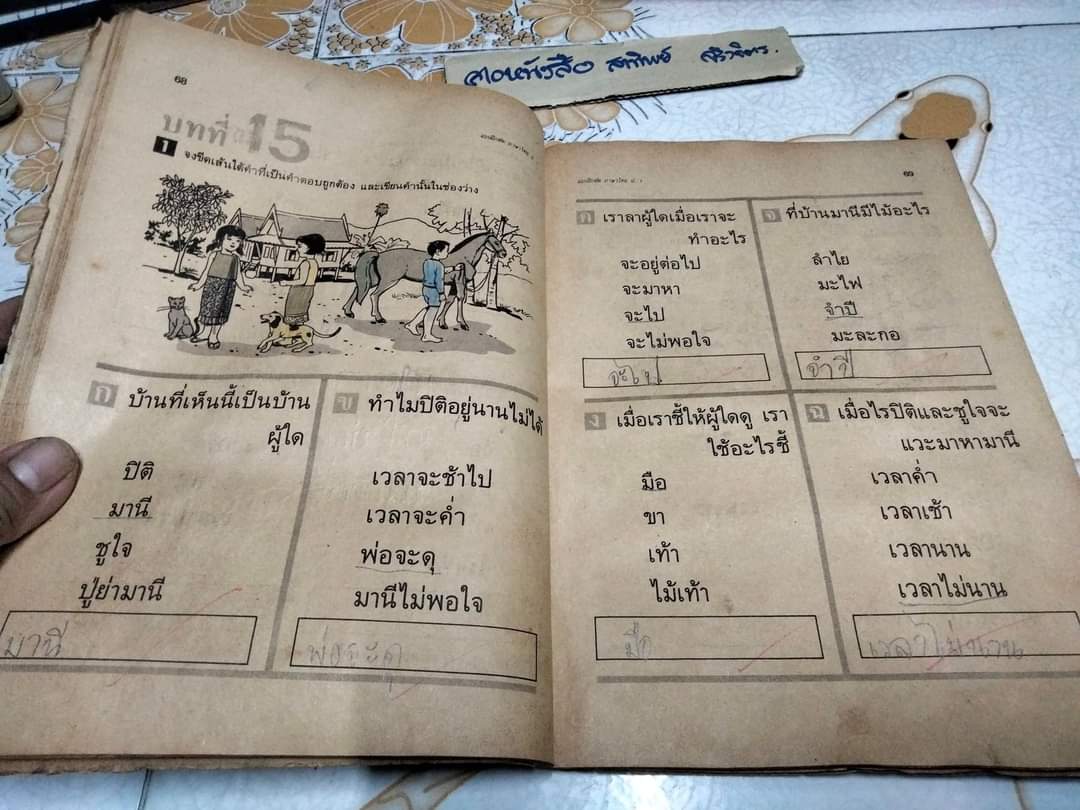 68
บทที่ 15
แบบฝึกหัด ภาษาไทย ป. ๑
1 จงขีดเส้นใต้คำที่เป็นคำตอบถูกต้อง และเขียนคำนั้นในช่องว่าง
ก บ้านที่เห็นนี้เป็นบ้าน
ผู้ใด
ปิติ
มานี
ชูใจ
ปู่ย่ามานี
มานี
ข ทำไมปิติอยู่นานไม่ได้
เวลาจะช้าไป
เวลาจะค่ำ
พ่อจะดุ
มานีไม่พอใจ
พ่อจะดุ
แบบฝึกหัด ภาษาไทย ป. ๑
69
ค เราลาผู้ใดเมื่อเราจะ
ทำอะไร
จะอยู่ต่อไป
จะมาหา
จะไป
จะไม่พอใจ
จะไป
จ ที่บ้านมานีมีไม้อะไร
ลำไย
มะไฟ
จำปี
มะละกอ
จำปี
ง เมื่อเราชี้ให้ผู้ใดดู เรา
ใช้อะไรชี้
มือ
ขา
เท้า
ไม้เท้า
มือ
ฉ เมื่อไรปิติและชูใจจะ
แวะมาหามานี
เวลาค่ำ
เวลาเช้า
เวลานาน
เวลาไม่นาน
เวลาไม่นาน